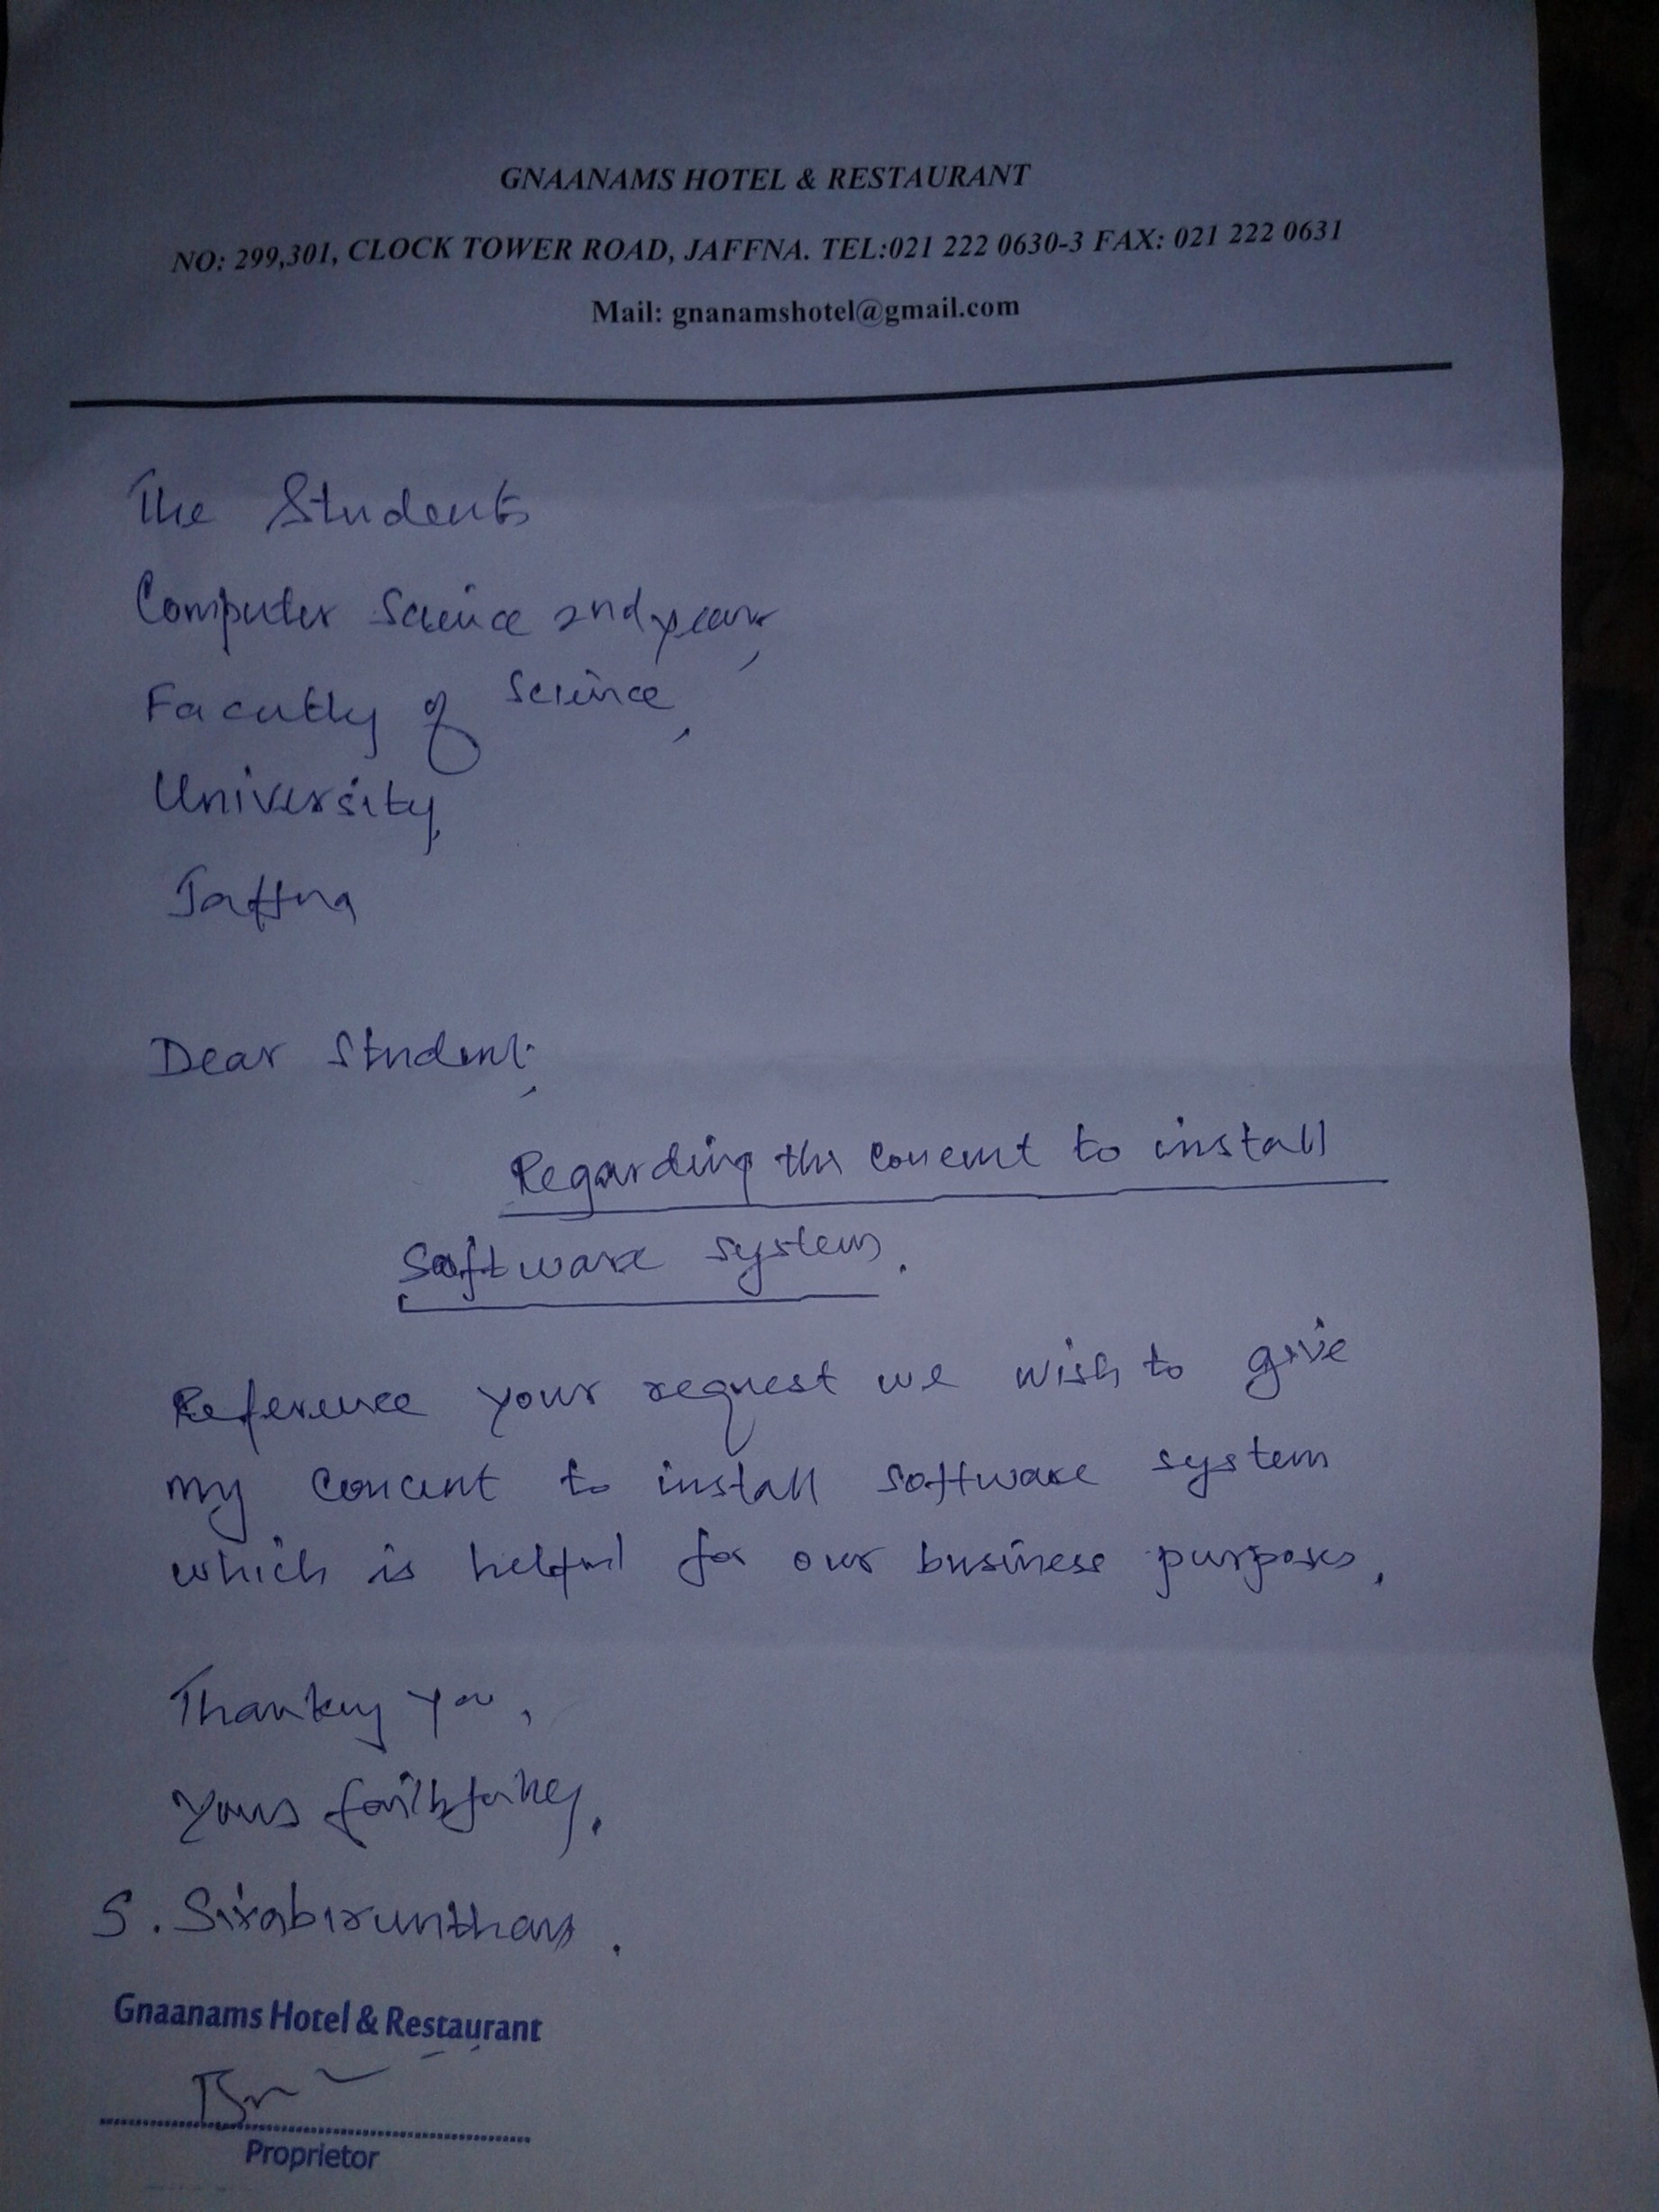 GNAANAMS HOTEL & RESTAURANT
NO: 299,301, CLOCK TOWER ROAD, JAFFNA. TEL:021 222 0630-3 FAX: 021 222 0631
Mail: gnanamshotel@gmail.com
The Students
Computer Science 2nd year,
Faculty of Science,
University,
Jaffna
Dear Student,
Regarding the concent to install
Software system.
Reference your request we wish to give
my concent to install software system
which is helpful for our business purposes.
Thanking you,
Yours faithfully,
S. Sirabirunthan.
Gnaanams Hotel & Restaurant
Proprietor